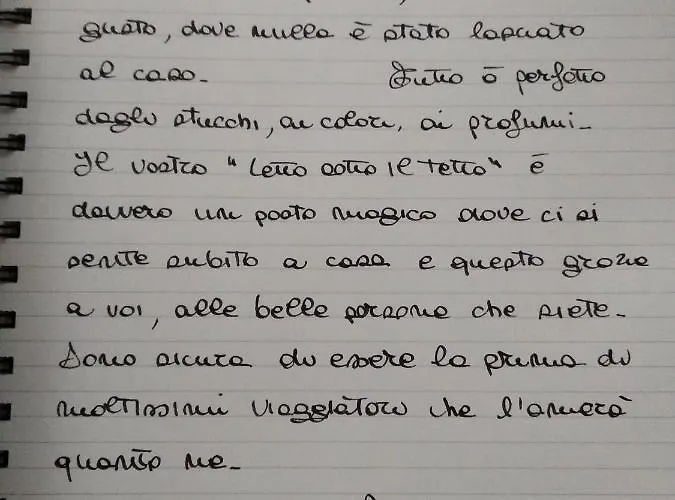 gusto, dove nulla è stato lasciato
al caso. Tutto è perfetto
dagli stucchi, ai colori, ai profumi.
Il vostro "letto sotto il tetto" è
davvero un posto magico dove ci si
sente subito a casa e questo grazie
a voi, alle belle persone che siete.
Sono sicura di essere la prima di
moltissimi viaggiatori che l'amerà
quanto me.